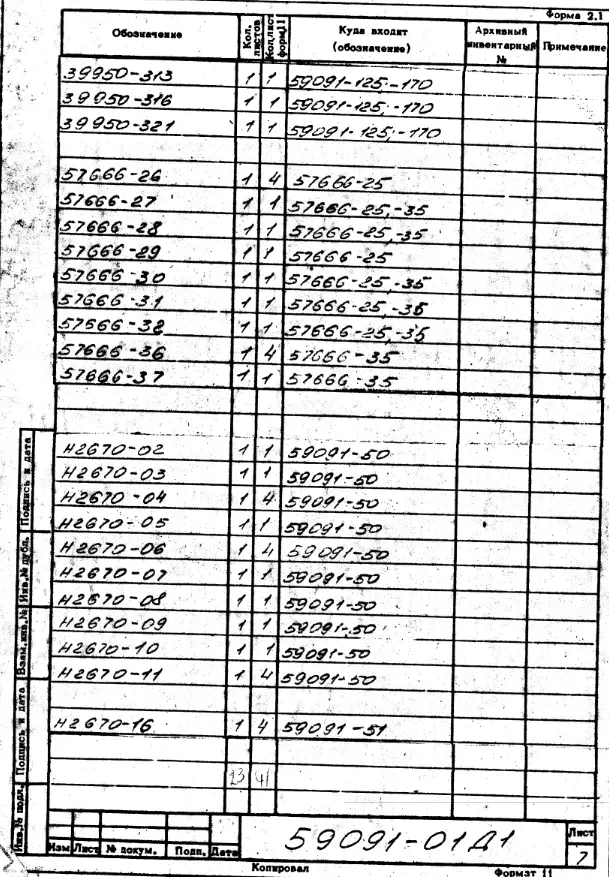 Форма 2.1
Обозначение Кол. листов Кол.лист форм.11 Куда входит (обозначение) Архивный инвентарный № Примечание
39950-313 1 1 59091-125,-170
39950-316 1 1 59091-125,-170
39950-321 1 1 59091-125,-170
57666-26 1 4 57666-25
57666-27 1 1 57666-25,-35
57666-28 1 1 57666-25,-35
57666-29 1 1 57666-25
57666-30 1 1 57666-25,-35
57666-31 1 1 57666-25,-35
57666-32 1 1 57666-25,-35
57666-36 1 4 57666-35
57666-37 1 1 57666-35
Н2670-02 1 1 59091-50
Н2670-03 1 1 59091-50
Н2670-04 1 4 59091-50
Н2670-05 1 1 59091-50
Н2670-06 1 4 59091-50
Н2670-07 1 1 59091-50
Н2670-08 1 1 59091-50
Н2670-09 1 1 59091-50
Н2670-10 1 1 59091-50
Н2670-11 1 4 59091-50
Н2670-16 1 4 59091-51
23 41
Подпись и дата
Инв.№ дубл.
Взам.инв.№
Подпись и дата
Инв.№ подл.
Изм Лист № докум. Подп. Дата
59091-01Д1
Лист
7
Копировал
Формат 11